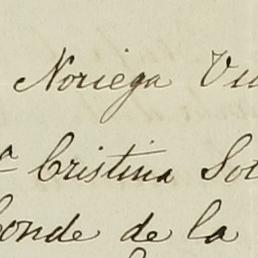 Noriega Vu
a Cristina Sot
Conde de la